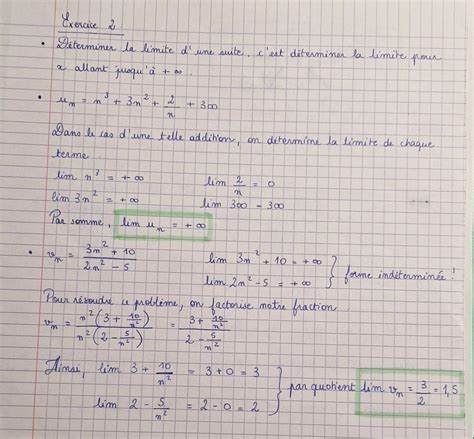 Exercice 2
• Déterminer la limite d'une suite, c'est déterminer la limite pour
x allant jusqu'à +∞.
• uₙ = n³ + 3n² + 2/n + 300
Dans le cas d'une telle addition, on détermine la limite de chaque
terme.
lim n³ = +∞ lim 2/n = 0
lim 3n² = +∞ lim 300 = 300
Par somme, lim uₙ = +∞
• vₙ = (3n² + 10)/(2n² - 5) lim 3n² + 10 = +∞
lim 2n² - 5 = +∞ } forme indéterminée !
Pour résoudre ce problème, on factorise notre fraction.
vₙ = n²(3 + 10/n²)/n²(2 - 5/n²) = (3 + 10/n²)/(2 - 5/n²)
Ainsi, lim 3 + 10/n² = 3 + 0 = 3
lim 2 - 5/n² = 2 - 0 = 2 } par quotient lim vₙ = 3/2 = 1,5